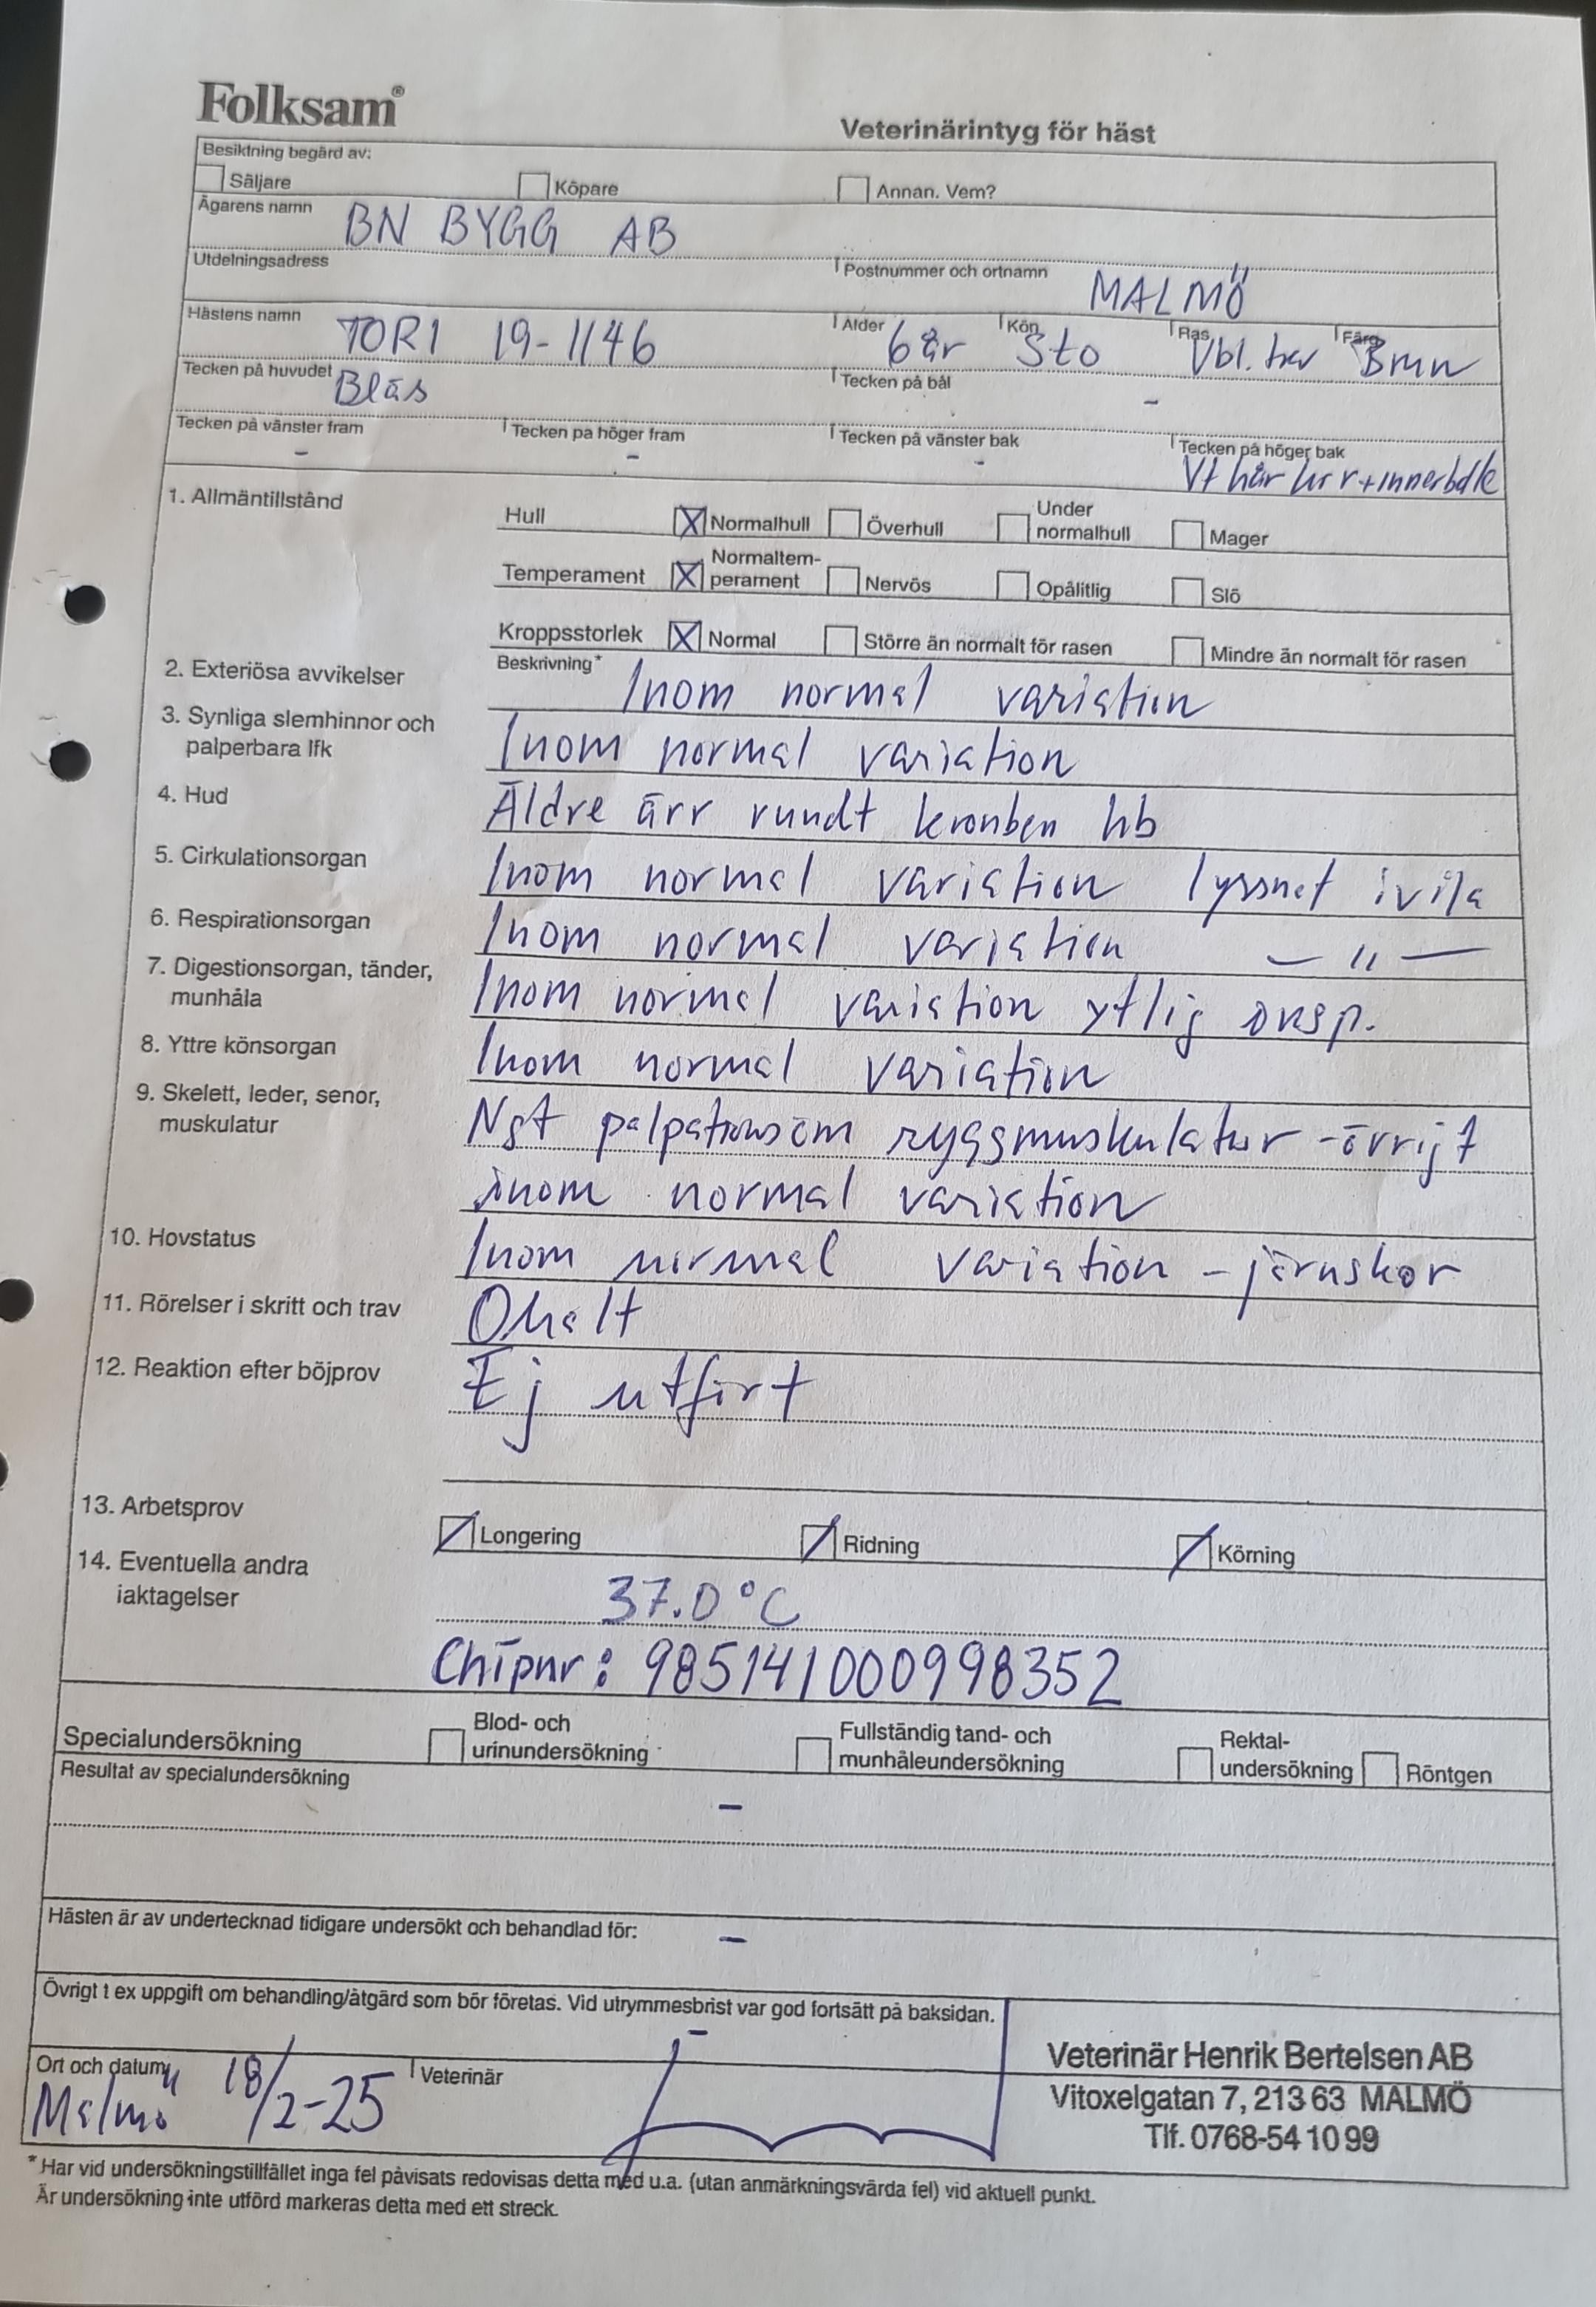 Folksam®
Veterinärintyg för häst
Besiktning begärd av:
Säljare Köpare Annan. Vem?
Ägarens namn BN BYGG AB
Utdelningsadress Postnummer och ortnamn MALMÖ
Hästens namn TORI 19-1146 Ålder 6 år Kön Sto Ras Vbl. trav Färg Brun
Tecken på huvudet Bläs Tecken på bål -
Tecken på vänster fram - Tecken på höger fram - Tecken på vänster bak - Tecken på höger bak
Vt hår kr r+innerballe
1. Allmäntillstånd
Hull X Normalhull Överhull Under normalhull Mager
Temperament X Normaltem-perament Nervös Opålitlig Slö
Kroppsstorlek X Normal Större än normalt för rasen Mindre än normalt för rasen
2. Exteriösa avvikelser Beskrivning* Inom normal variation
3. Synliga slemhinnor och
palperbara lfk Inom normal variation
4. Hud Äldre ärr rundt kronben hb
5. Cirkulationsorgan Inom normal variation lyssnet i vila
6. Respirationsorgan Inom normal variation — " —
7. Digestionsorgan, tänder,
munhåla Inom normal variation ytlig insp.
8. Yttre könsorgan Inom normal variation
9. Skelett, leder, senor,
muskulatur Ngt palpationsöm ryggmuskulatur - övrigt
inom normal variation
10. Hovstatus Inom normal variation - järnskor
11. Rörelser i skritt och trav Ohalt
12. Reaktion efter böjprov Ej utfört
13. Arbetsprov Longering Ridning Körning
14. Eventuella andra
iaktagelser 37.0 °C
Chipnr: 985141000998352
Specialundersökning Blod- och urinundersökning Fullständig tand- och munhåleundersökning Rektal-undersökning Röntgen
Resultat av specialundersökning
-
Hästen är av undertecknad tidigare undersökt och behandlad för: -
Övrigt t ex uppgift om behandling/åtgärd som bör företas. Vid utrymmesbrist var god fortsätt på baksidan.
-
Ort och datum Malmö 18/2-25 Veterinär
Veterinär Henrik Bertelsen AB
Vitoxelgatan 7, 213 63 MALMÖ
Tlf. 0768-54 10 99
* Har vid undersökningstillfället inga fel påvisats redovisas detta med u.a. (utan anmärkningsvärda fel) vid aktuell punkt.
Är undersökning inte utförd markeras detta med ett streck.